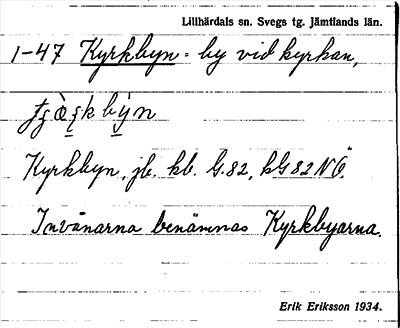 Lillhärdals sn. Svegs tg. Jämtlands län.
1-47 Kyrkbyn = by vid kyrkan,
Kyrkbyn, jb. kb. G.82, kG 82 NÖ.
Invånarna benämnas Kyrkbyarna.
Erik Eriksson 1934.